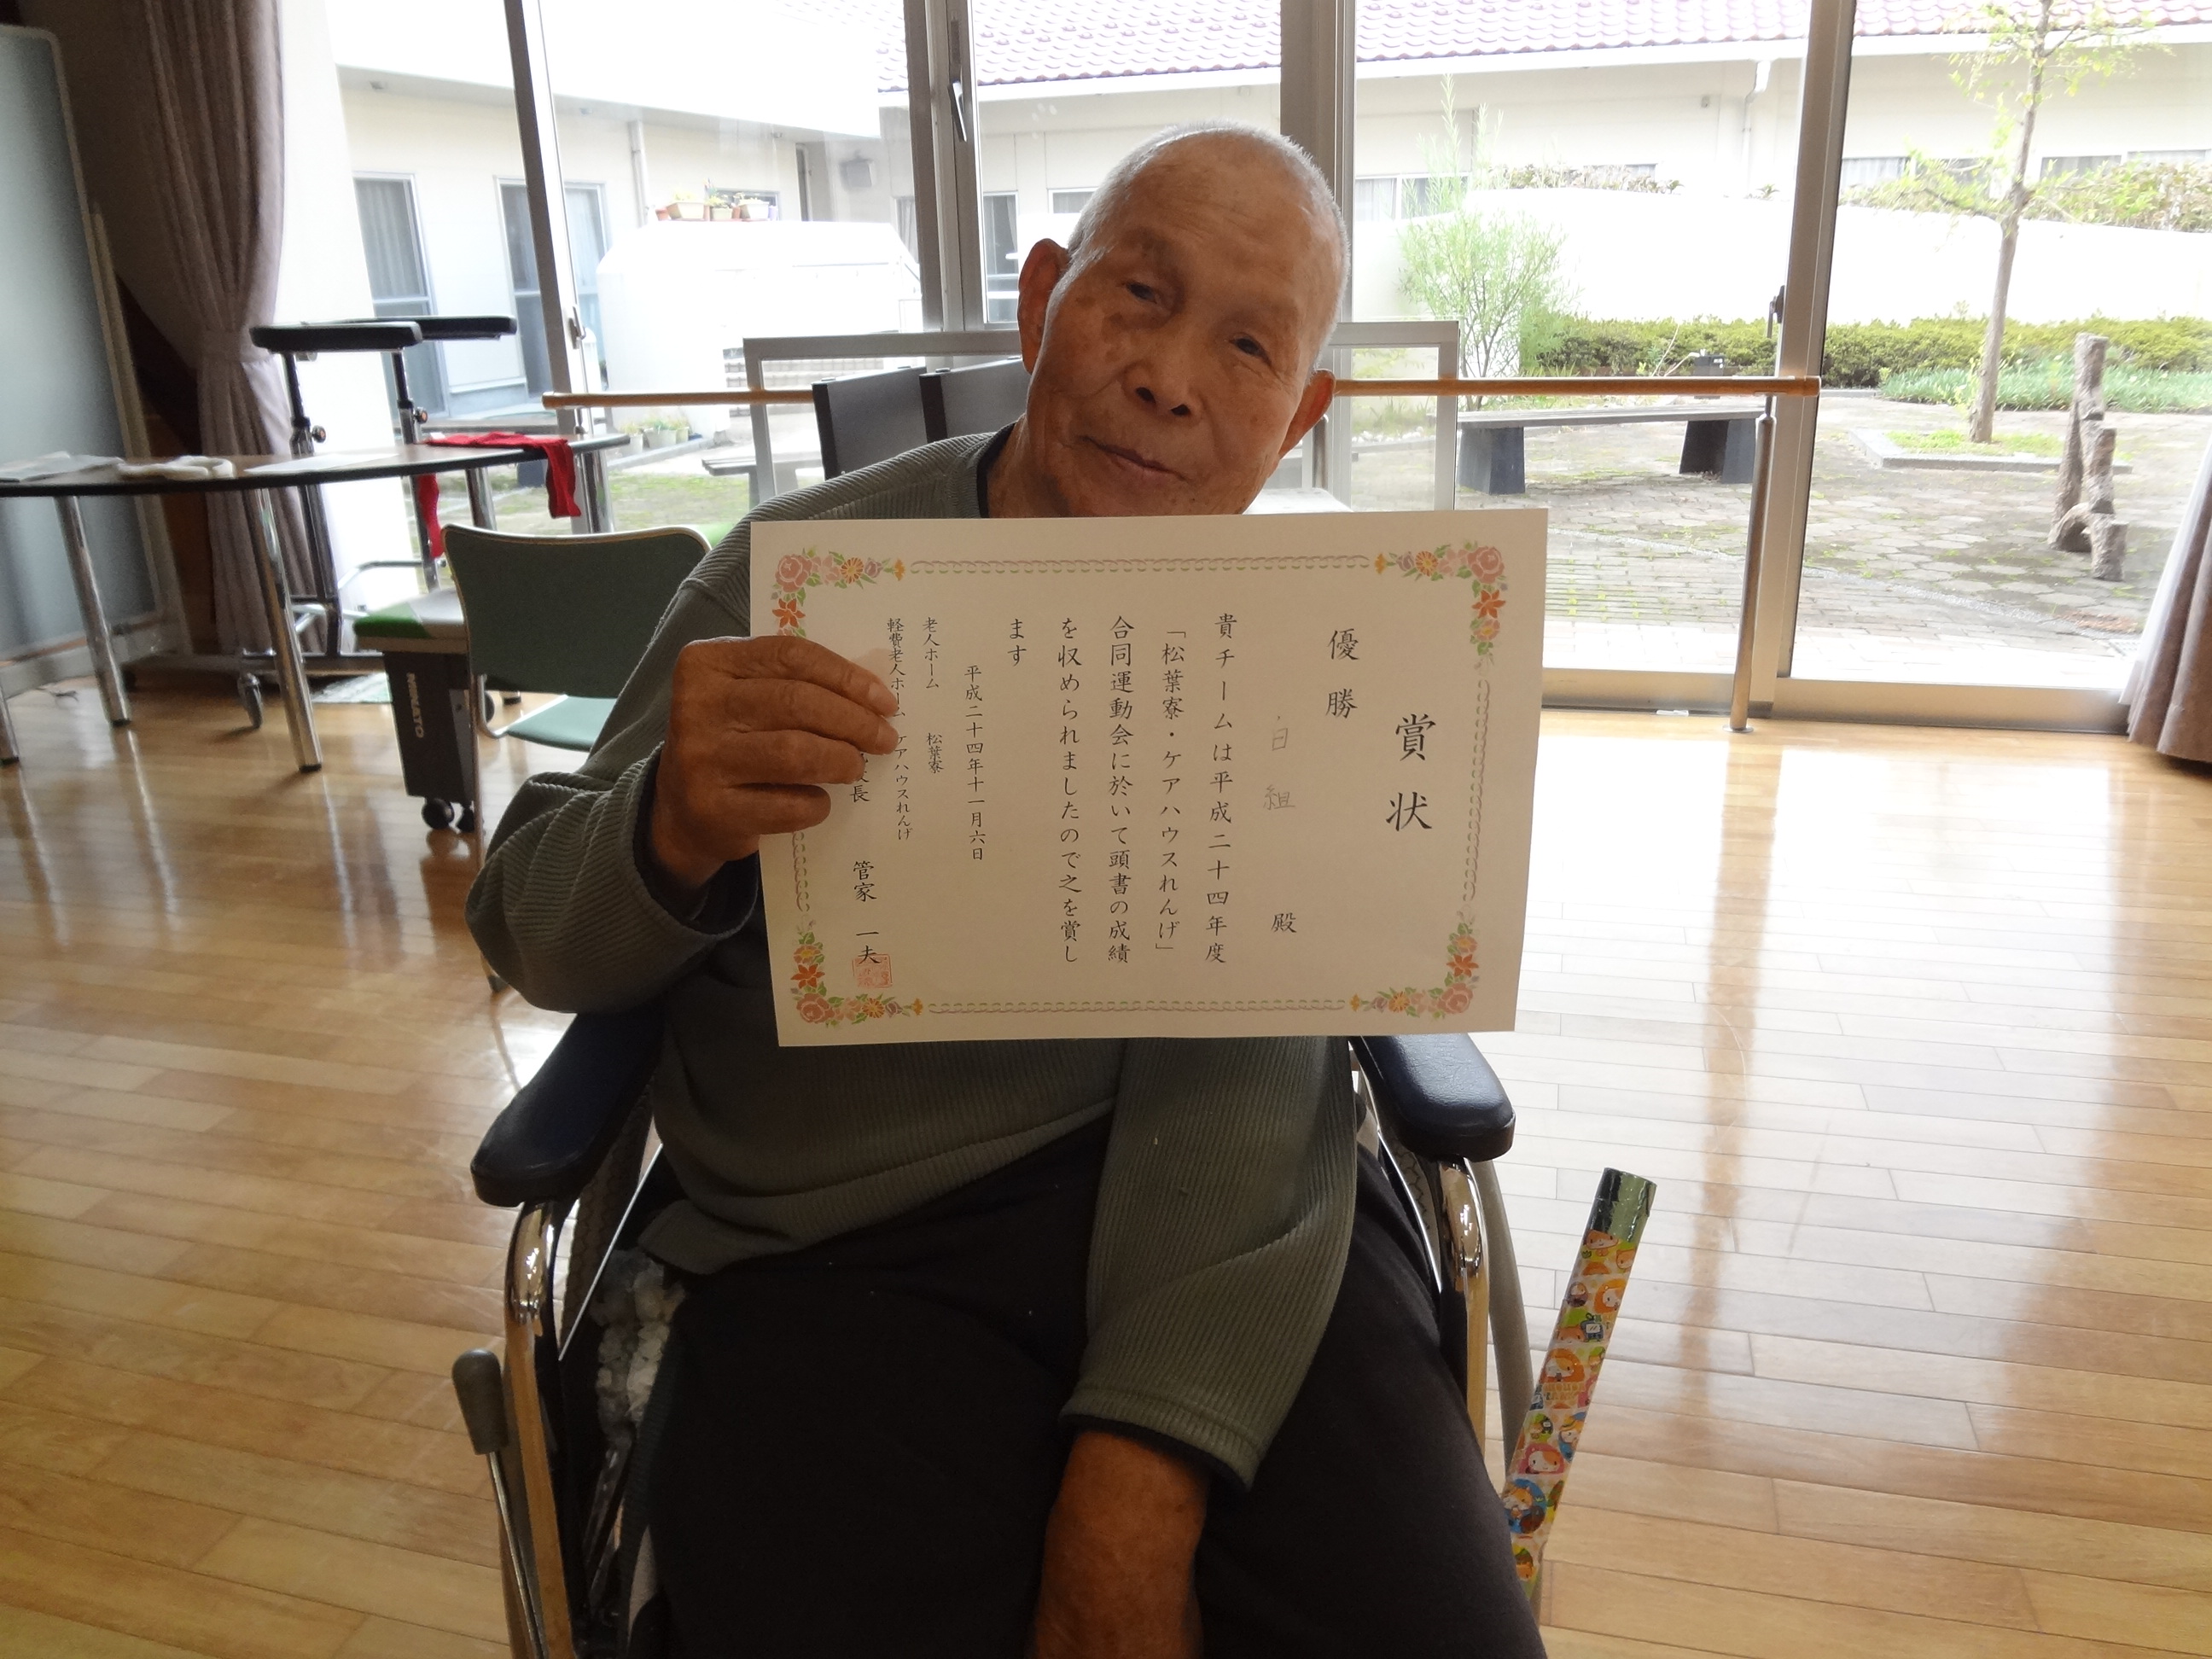 賞状
優勝
白組 殿
貴チームは平成二十四年度
「松葉寮・ケアハウスれんげ」
合同運動会に於いて頭書の成績
を収められましたので之を賞し
ます
平成二十四年十一月六日
老人ホーム 松葉寮
軽費老人ホーム ケアハウスれんげ
長 管家 一夫
MINATO